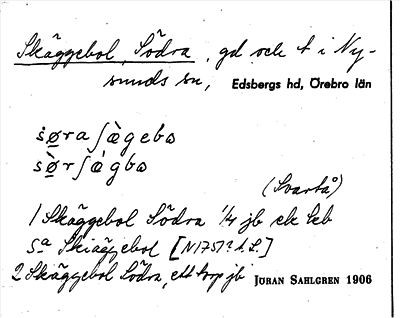 Skäggebol, Södra, gd och t i Ny-
sunds sn, Edsbergs hd, Örebro län
sø̀ra ʃæ̀gebω
sø̀r ʃæ̀gbω
(Svartå)
1 Skäggebol Södra 1/4 jb
Sa Skiäggebol [N1757? h.L.]
2 Skäggebol Södra, ett torp jb JÖRAN SAHLGREN 1906